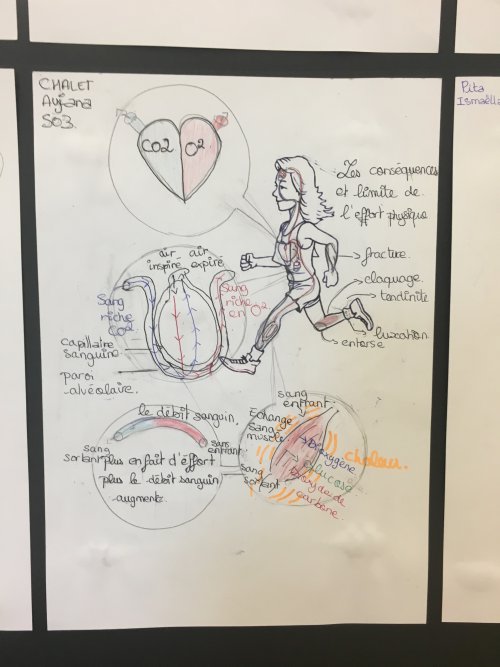 CHALET
Ayjana
S03.
CO2
O²
Les conséquences
et limite de
l'effort physique
fracture.
claquage.
tendinite
luxation
entorse
air inspiré
air expiré
Sang
riche
CO²
Sang
riche
en O²
capillaire
sanguine.
paroi
alvéolaire.
le débit sanguin.
sang
sortant
sang
entrant
plus en fait d'effort
plus le débit sanguin
augmente.
sang
entrant
Echange
Sang
muscle
sang
sortant
Dioxygène
Glucose
Dioxyde de
carbone.
chaleur.
Pita
Ismaëlla